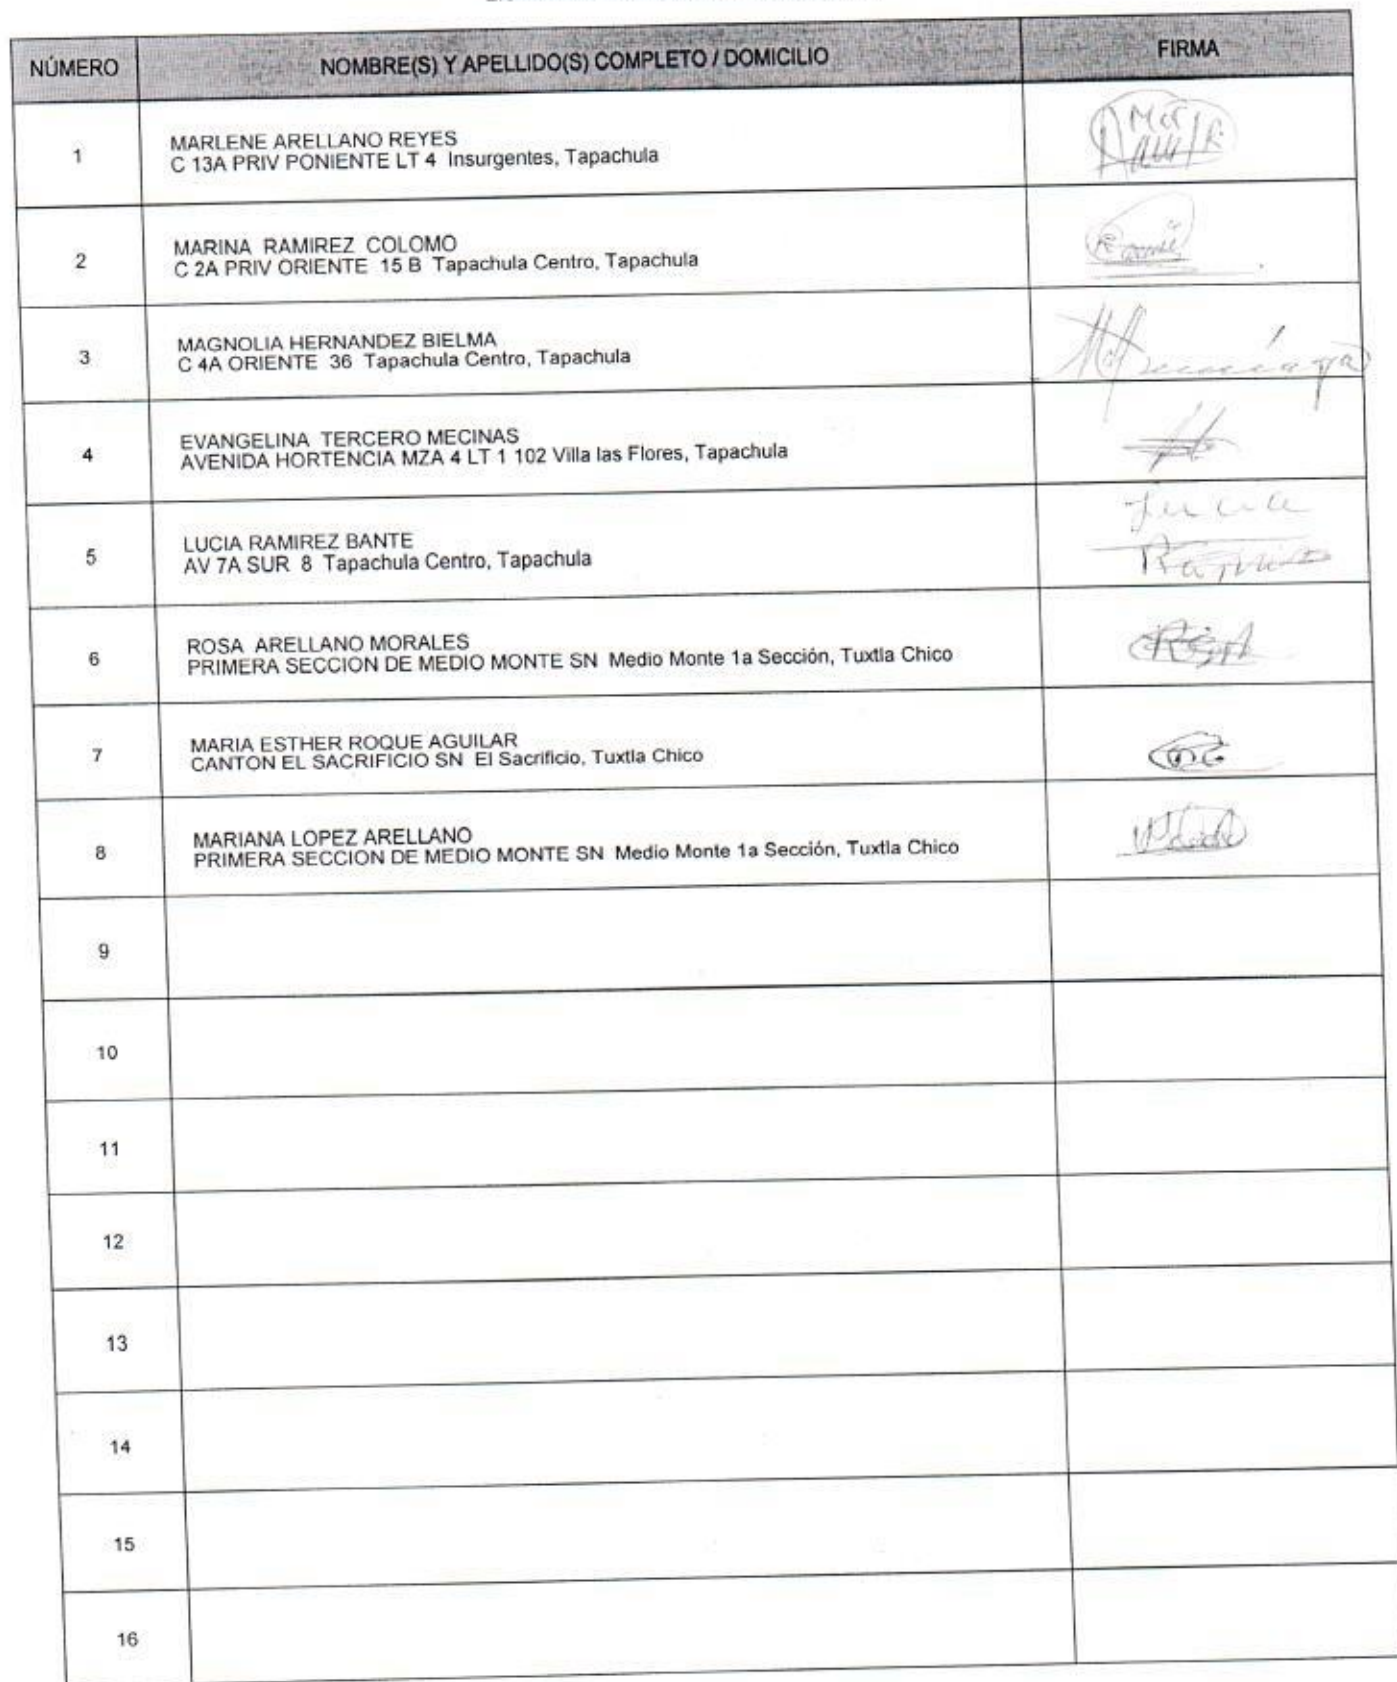 NÚMERO
NOMBRE(S) Y APELLIDO(S) COMPLETO / DOMICILIO
FIRMA
1
MARLENE ARELLANO REYES
C 13A PRIV PONIENTE LT 4 Insurgentes, Tapachula
2
MARINA RAMIREZ COLOMO
C 2A PRIV ORIENTE 15 B Tapachula Centro, Tapachula
3
MAGNOLIA HERNANDEZ BIELMA
C 4A ORIENTE 36 Tapachula Centro, Tapachula
4
EVANGELINA TERCERO MECINAS
AVENIDA HORTENCIA MZA 4 LT 1 102 Villa las Flores, Tapachula
5
LUCIA RAMIREZ BANTE
AV 7A SUR 8 Tapachula Centro, Tapachula
6
ROSA ARELLANO MORALES
PRIMERA SECCION DE MEDIO MONTE SN Medio Monte 1a Sección, Tuxtla Chico
7
MARIA ESTHER ROQUE AGUILAR
CANTON EL SACRIFICIO SN El Sacrificio, Tuxtla Chico
8
MARIANA LOPEZ ARELLANO
PRIMERA SECCION DE MEDIO MONTE SN Medio Monte 1a Sección, Tuxtla Chico
9
10
11
12
13
14
15
16